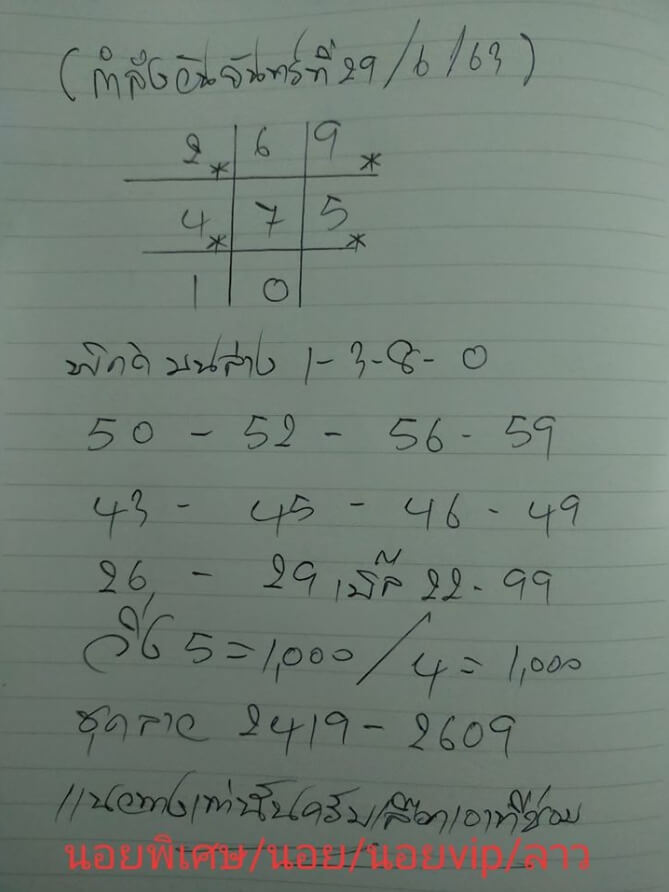 (กำลังวันจันทร์ที่ 29/6/63)
2* 6 9*
4* 7 5*
1 0
พิกัด บนล่าง 1-3-8-0
50 - 52 - 56 - 59
43 - 45 - 46 - 49
26, - 29, เบิ้ล 22-99
วิ่ง 5 = 1,000 / 4 = 1,000
ชุดลาว 2419 - 2609
แนวทางเท่านั้นครับเลือกเอาที่ชอบ
นอยพิเศษ/นอย/นอยvip/ลาว